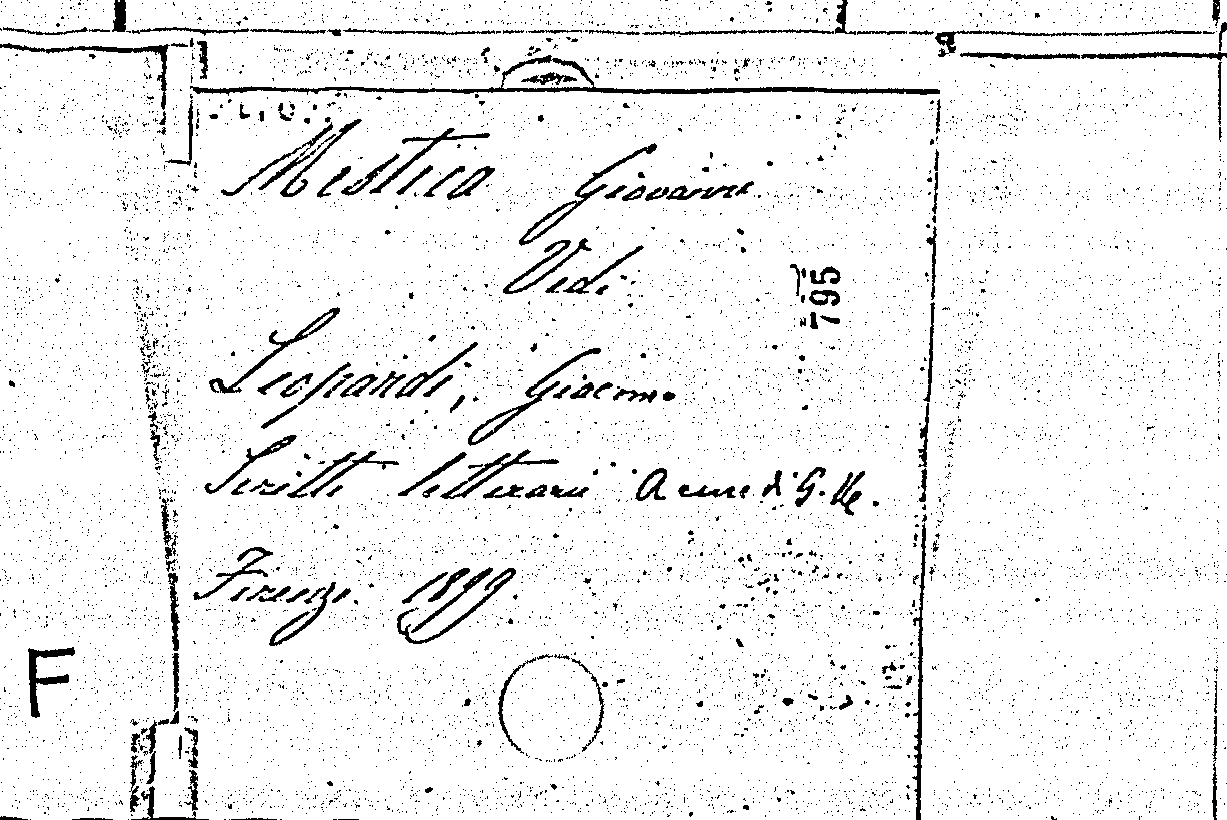 Mestica Giovanni
Vedi
Leopardi, Giacomo
Scritti letterari a cura di G. Me.
Firenze 1899.
795
F